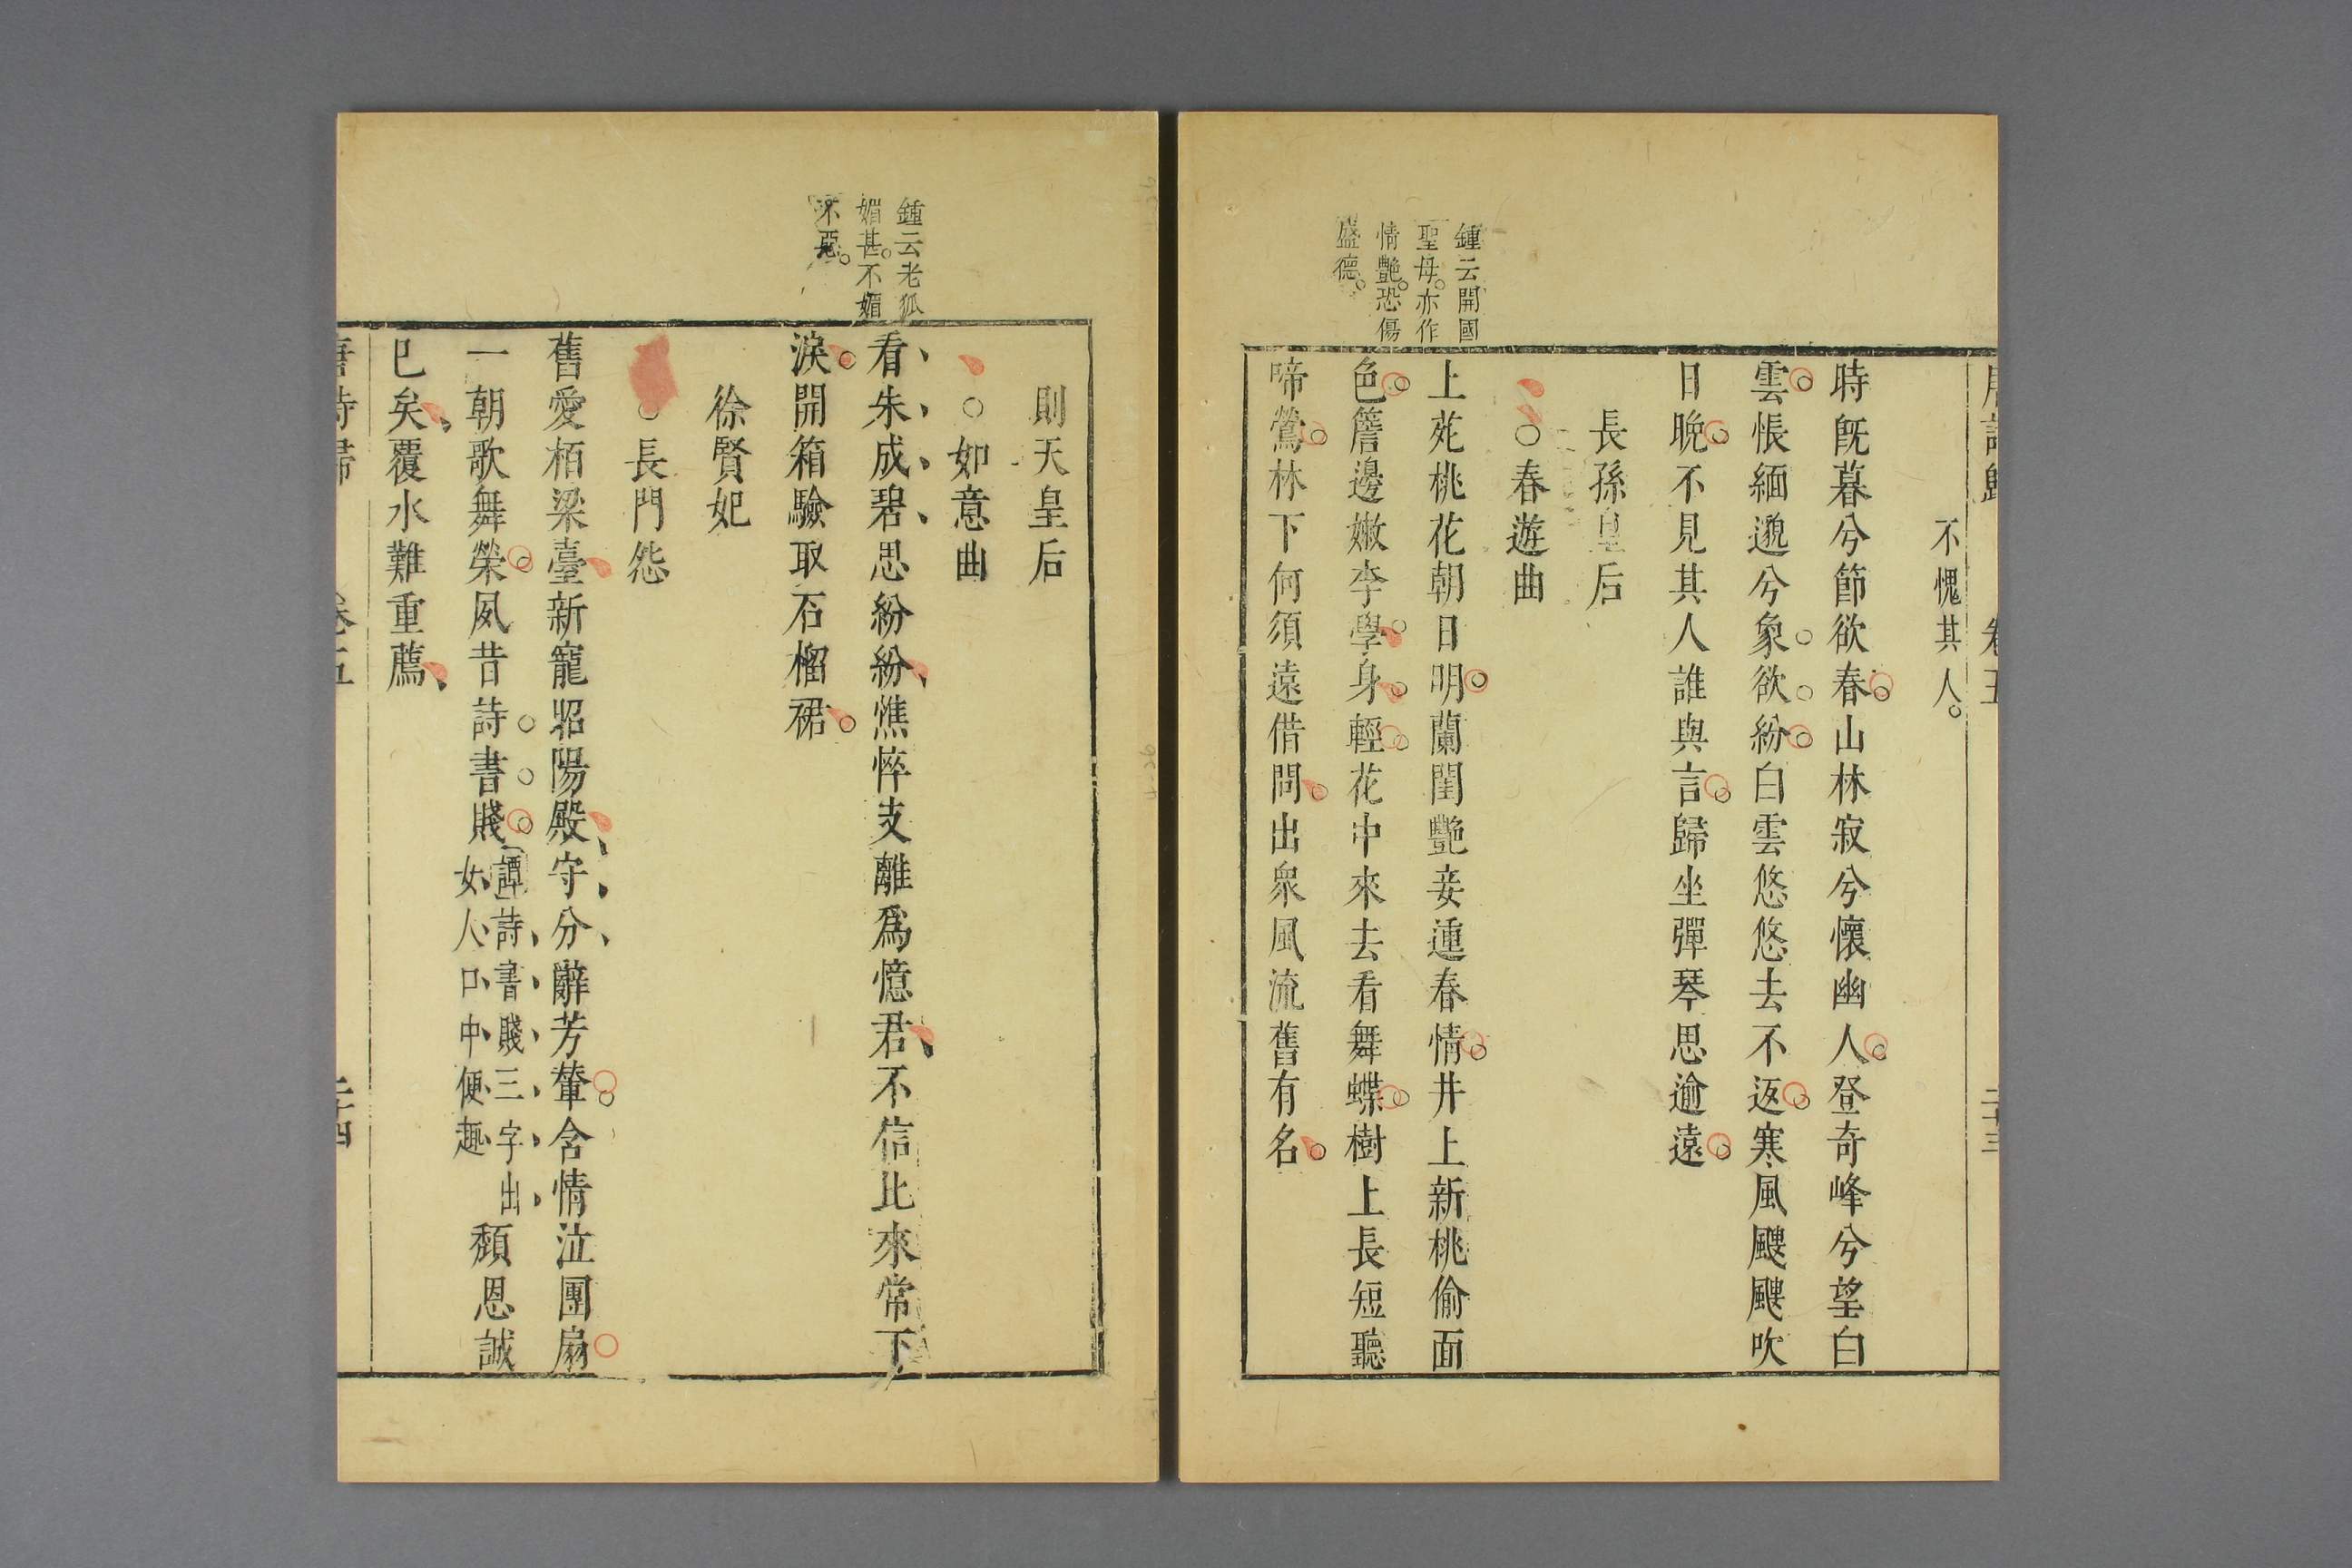 不愧其人。
時旣暮兮節欲春山林寂兮懷幽人登奇峰兮望白
雲悵緬邈兮象欲紛白雲悠悠去不返寒風颼颼吹
日晩不見其人誰與言歸坐彈琴思逾遠
長孫皇后
○春遊曲
鍾云開國
聖母。亦作
情艷。恐傷
盛德。
上苑桃花朝日明蘭閨艷妾運春情井上新桃偷面
色簷邊嫩李學身輕花中來去看舞蝶樹上長短聽
啼鶯林下何須遠借問出衆風流舊有名
則天皇后
○如意曲
鍾云老狐
媚甚。不媚
不惡。
看朱成碧思紛紛憔悴支離爲憶君不信比來常下
淚開箱驗取石榴裙
徐賢妃
○長門怨
舊愛栢梁臺新寵昭陽殿守分辭芳輦含情泣團扇
一朝歌舞榮夙昔詩書賤
譚詩書賤三字出
女人口中便趣
頹恩誠
已矣覆水難重薦